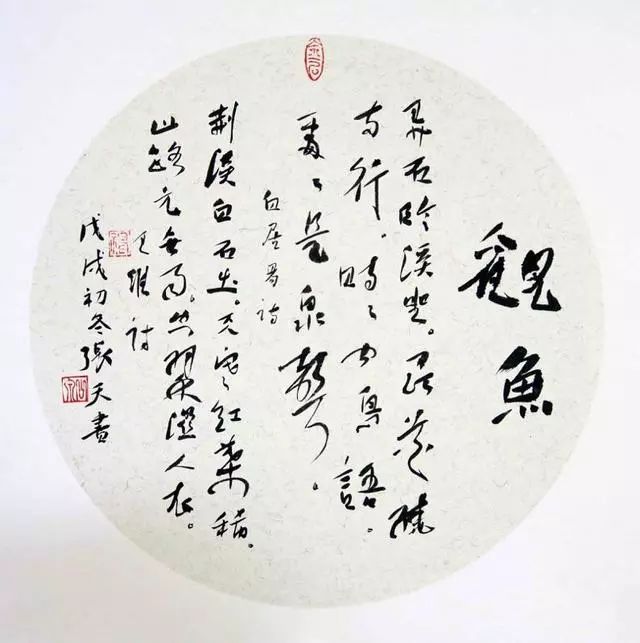 觀魚
弄石臨溪坐。尋花繞
寺行。時々聞鳥語。
處々是泉聲。
白居易詩
荆溪白石出。天寒紅葉稀。
山路元無雨。空翠濕人衣。
王維詩
戊戌初冬張天書